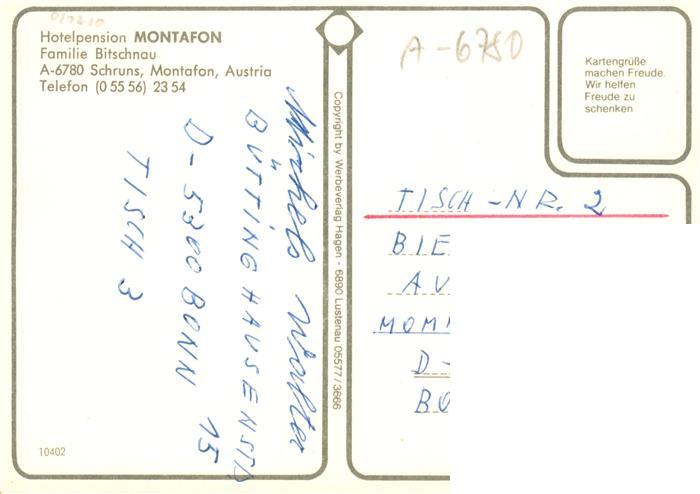 Hotelpension MONTAFON
Familie Bitschnau
A-6780 Schruns, Montafon, Austria
Telefon (0 55 56) 23 54
Walter
BÜTTINGHAUSENSTR
15
D-5300 BONN
TISCH 3
10402
Copyright by Werbeverlag Hagen - 6890 Lustenau 05577/3666
A-6780
Kartengrüße
machen Freude.
Wir helfen
Freude zu
schenken
TISCH-NR. 2
BIE
AV
MOM
D-
BO